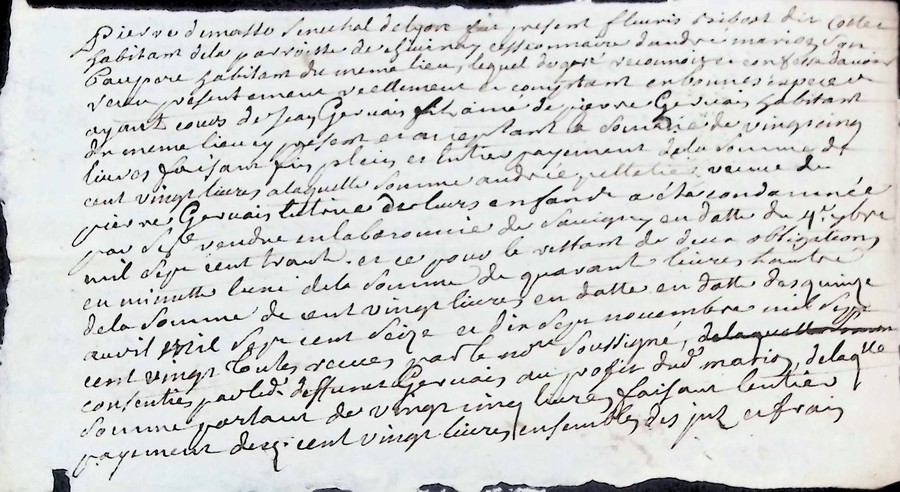 Pierre demasso senechal delyon fut present fleuris tribost dit collet
habitant dela parroisse de cessionnaire dandré marion son
Beaupere habitant du meme lieu, lequel degré reconnoit et confesse davoir
receu présentement reellement et comptant en bonnes especes
ayant cours de jean Gervais fils ainé de pierre Gervais habitant
du meme lieu cy présent et acceptant la somme de vingt cinq
livres faisant fin plein et entier payement dela somme de
cent vingt livres a laquelle somme andrie pelletier veuve du
pierre Gervais tutrice de leurs enfands a été condamnée
par sentence rendue en la baronnie de Savigny en datte du 4e 7bre
mil sept cent trante et ce pour le restant de deux obligations
en minutte lune dela somme de quarant livres lautre
dela somme de cent vingt livres en datte en datte des quinze
avril mil sept cent seize et dix sept novembre mil sept
cent vingt toutes receues par le nore soussigné, delaquelle somme
consenties par led. deffunct Gervais au profit dud. marion delaqlle
somme partant de vingt cinq livres faisant lentier
payement desd. cent vingt livres ensembles des jnt et frais